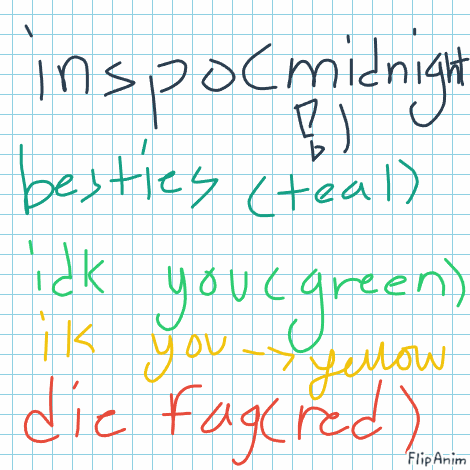 inspo(midnight
)
besties (teal)
idk you(green)
ik you → yellow
die fag(red)
FlipAnim